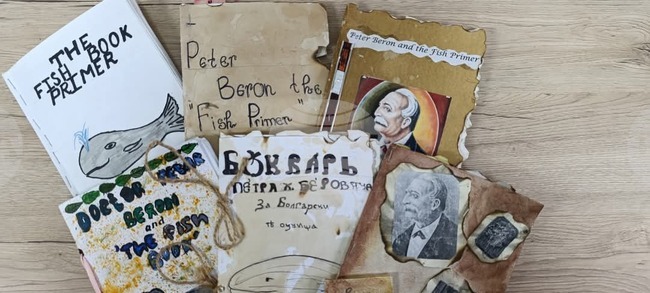 THE
FISH BOOK
PRIMER
Peter
Beron the
"Fish Primer"
Peter Beron and the Fish Primer
DOCTOR PETER
BERON
and
THE FISH
БУКВАРЬ
ПЕТРА Х. БЕРОВИЧА
За Болгарски